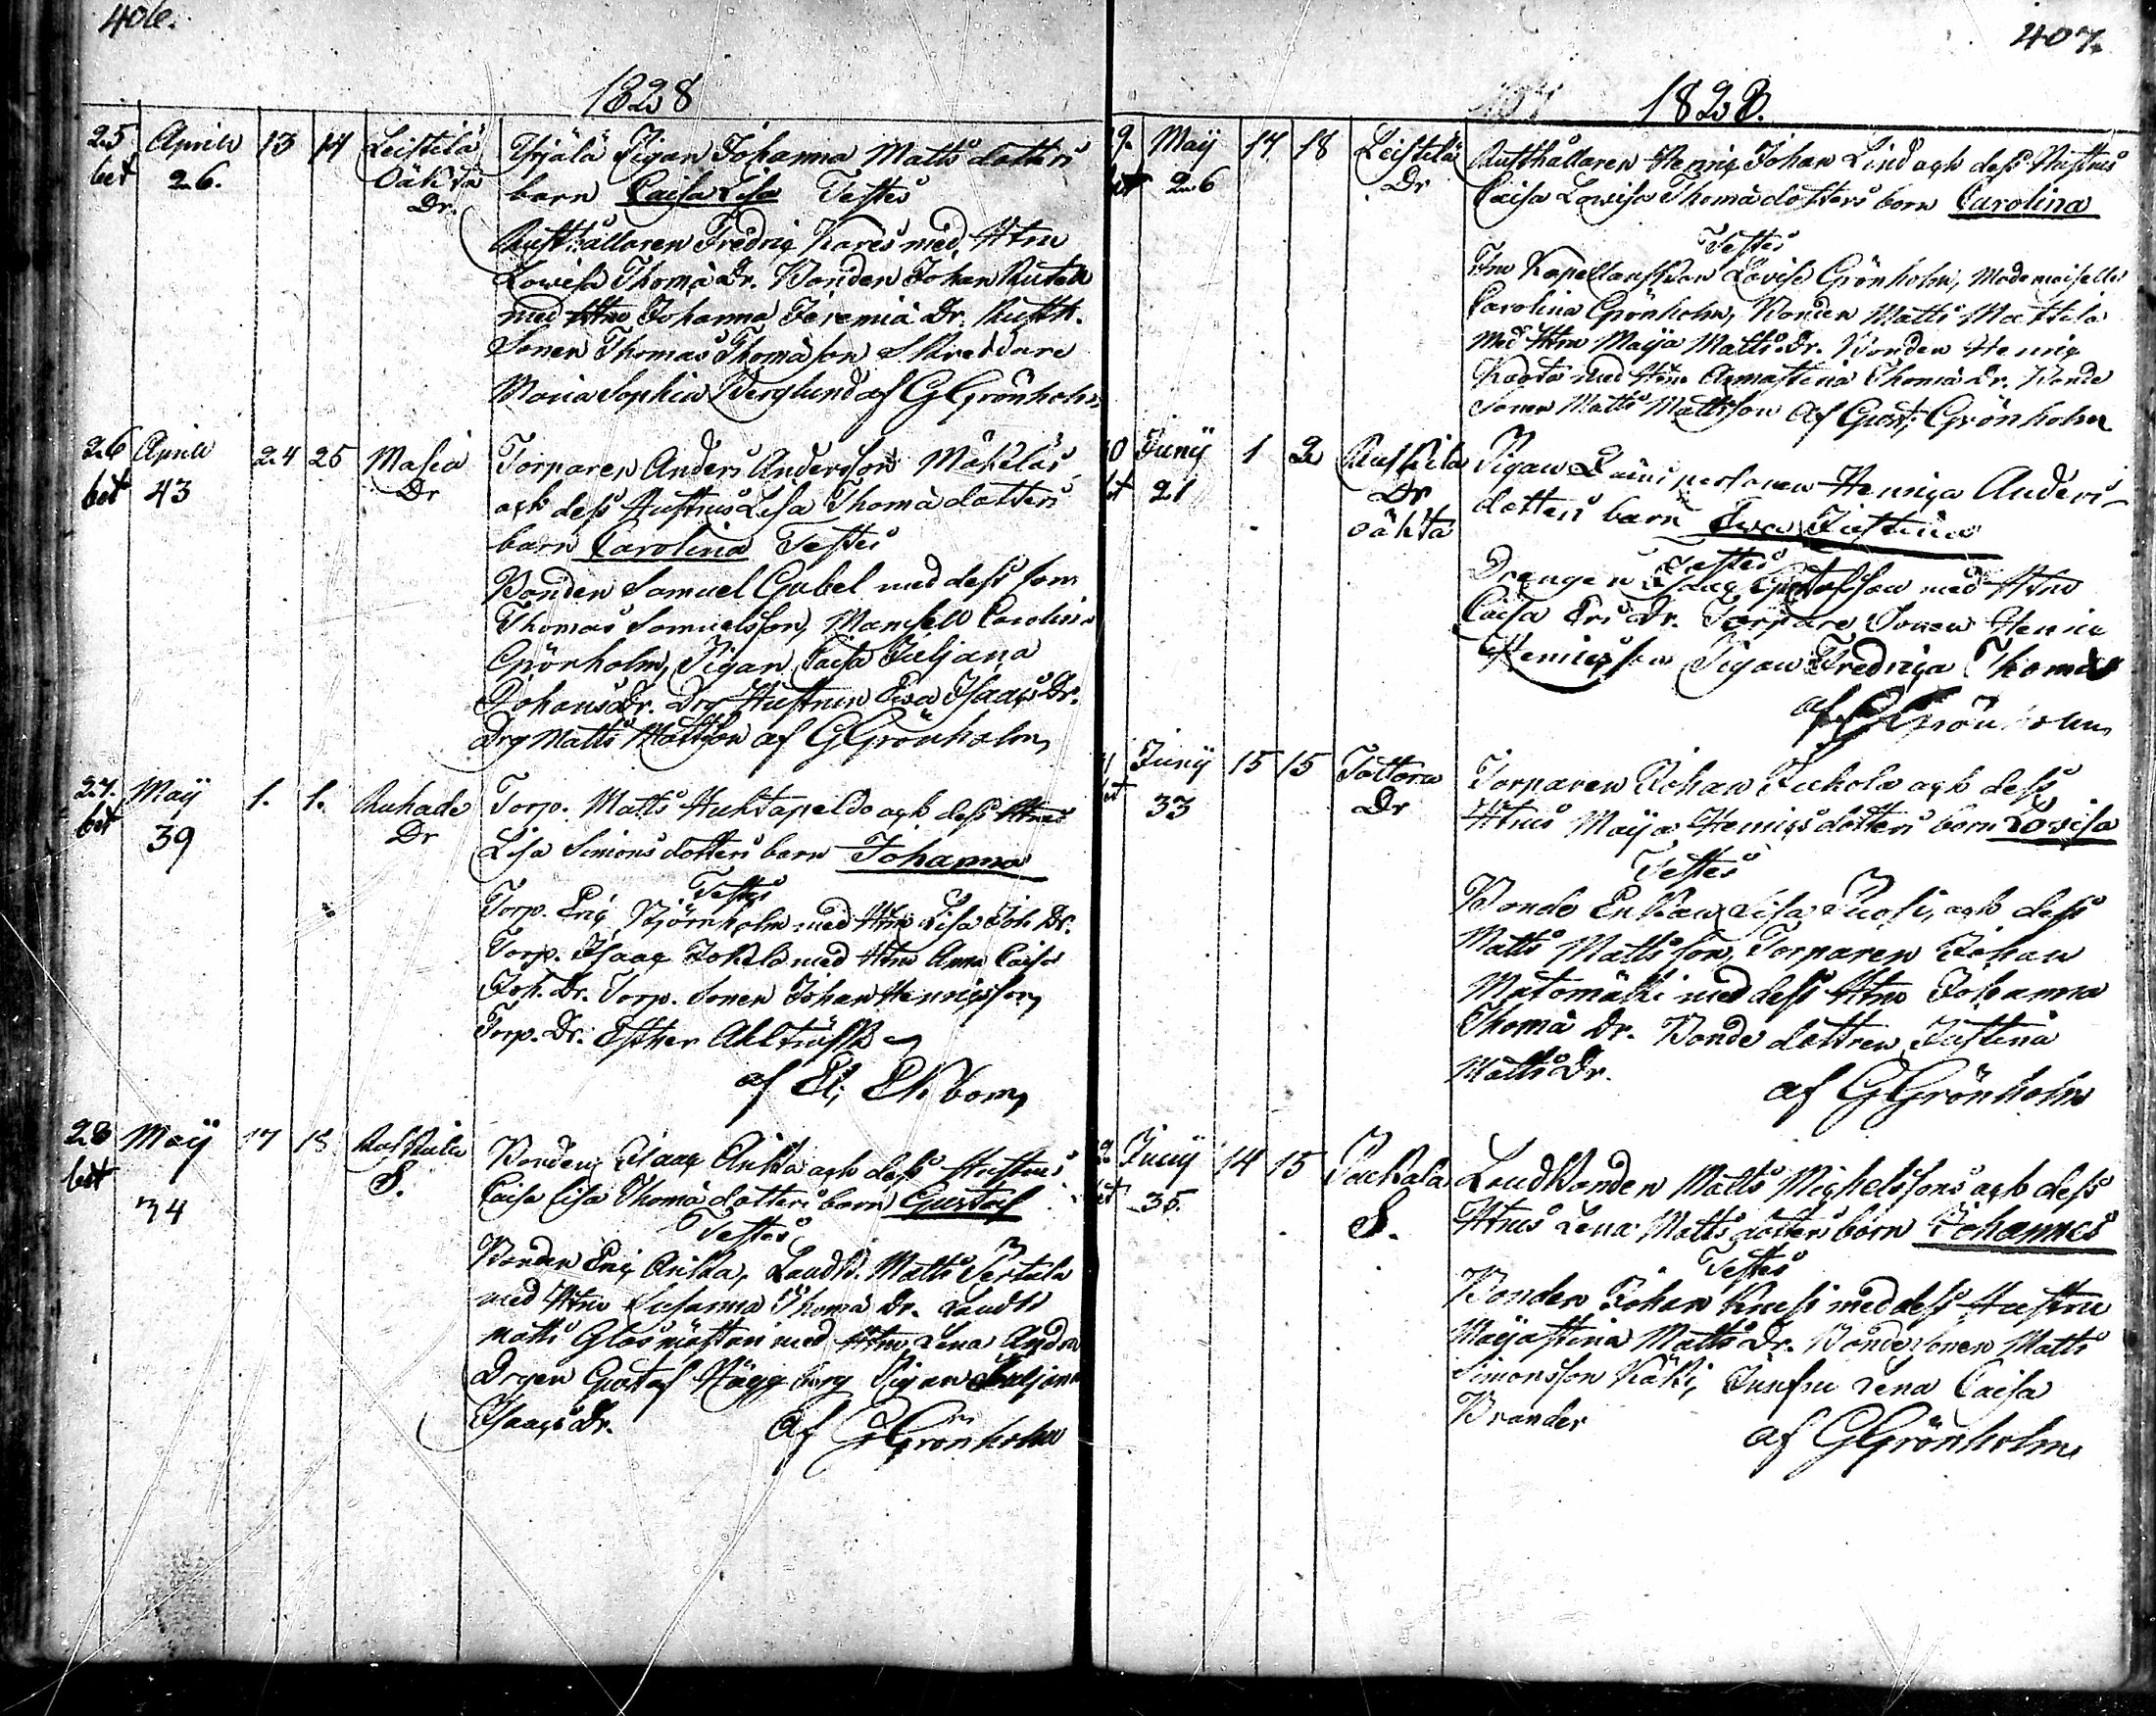 406.
1828
25 Aprill 13 14 Leistilä Tigan Johanna Matts dotters
bet 26. Oäkta Dr. barn Caisa Lisa Testes
Rusthållaren Fredriq Kares med Htru
Lowisa Thomä Dr. Bonden Johan Rutell
med Htru Johanna Jeremiä Dr. Rusth.
Sonen Thomas Thomason Skreddare
Maria Sophia Berglund af GGrönholm
26 Aprill 24 25 Masia Torparen Anders Andersson Mäkeläs
bet 43 Dr och dess Hustrus Lisa Thomä dotters
barn Carolina Testes
Bonden Samuel Gabel med dess son
Thomas Samuelsson, Mamsell Carolina
Grönholm, Pigan Caisa Juljana
Johans Dr. Drg Hustrun Ewa Isaacs Dr.
Drg Matts Mattsson af GGrönholm
27. May 1. 1. Ruhade Torp. Matts Huhtapeldo och dess Htrus
bet 39 Dr Lisa Simons dotters barn Johanna
Testes
Torp. Eriq Björnholm med Htru Lisa Joh Dr.
Torp. Isaac Jokela med Htru Anna Caisa
Joh. Dr. Torp. Sonen Johan Henricsson,
Torp. Dr. Esther Ahlträsk
af El, Ekbom
28 May 17 18 Bonden Isaac Anka och dess Hustrus
bet 34 S. Caisa Lisa Thomä dotters barn Gustaf
Testes
Bonden Eriq Anka, Landb. Matts Pertula
med Htru Susanna Thomä Dr. Landb
Matts Glasmästari med Htru Lena Andra
Drgen Gustaf Häggberg Pigan Juljana
Isaacs Dr. af GGrönholm
407.
1828.
9. May 17 18 Leistilä Rusthållaren Henriq Johan Lind och dess Hustrus
bet 26 Dr Caisa Lowisa Thomä dotters barn Carolina
Testes
Fru Kapellanskan Lovisa Grönholm, Mademoiselle
Carolina Grönholm, Bonden Matts Mattila
med Htru Maija Matts Dr. Bonden Henriq
Kaota med Htru Annastina Thomä Dr. Bonde
Sonen Matts Mattsson af Gust; Grönholm
0 Junij 1 2 Pigan Qvinspersonen Henrica Anders
bet 21 Dr oäkta dotters barn Ewa Justina
Testes
Drengen Isaac Gustafsson med Htru
Caisa Eri Dr. Torpare Sonen Henric
Henricsson Pigan Fredrica Thomä
af GGrönholm
1 Junij 15 15 Tattara Torparen Johan Juckola och dess
bet 33 Dr Htrus Maija Henrics dotters barn Lovisa
Testes
Bonde Enkan Lisa Ruosi, och dess
Matts Mattsson, Torparen Johan
Mätömäki med dess Htru Johanna
Thomä Dr. Bonde dottren Justina
Matts Dr. af GGrönholm
2. Junij 14 15 Landbonden Matts Michelssons och dess
bet 35. S. Htrus Lena Matts dotters barn Johannes
Testes
Bonden Johan Knusi med dess Hustru
Maijastina Matts Dr. Bondesonen Matts
Simonsson Käki, Jungfru Lena Caisa
Brander af GGrönholm